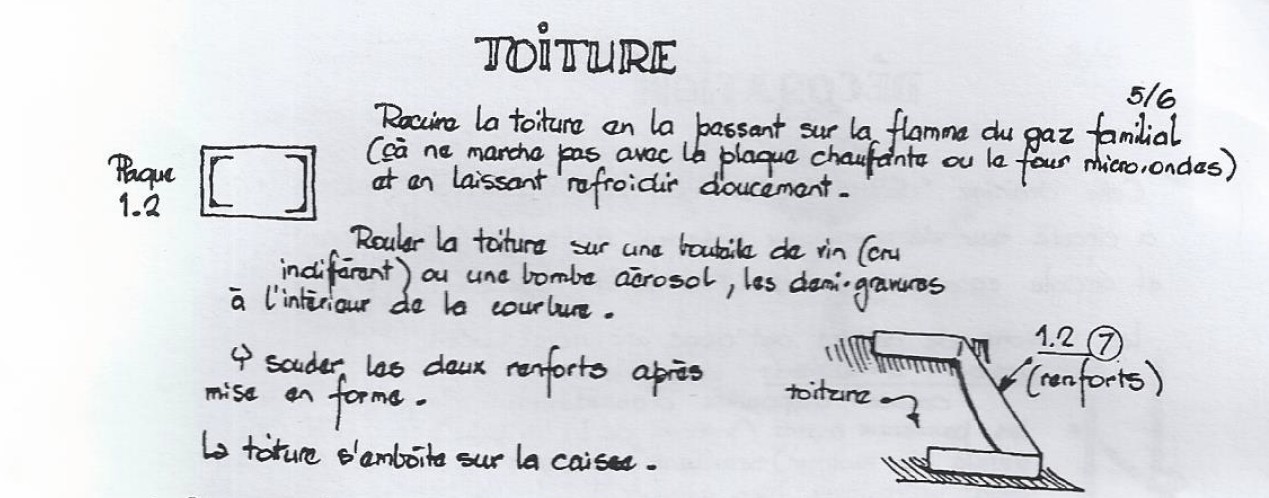 TOITURE
5/6
Recuire la toiture en la passant sur la flamme du gaz familial
(çà ne marche pas avec la plaque chaufante ou le four micro.ondes)
et en laissant refroidir doucement.
Plaque
1.2
Rouler la toiture sur une bouteile de vin (cru
indiférent) ou une bombe aérosol, les demi-gravures
à l'intérieur de la courbure.
souder les deux renforts après
mise en forme.
1.2 7
(renforts)
toiture
La toiture s'emboîte sur la caisse.